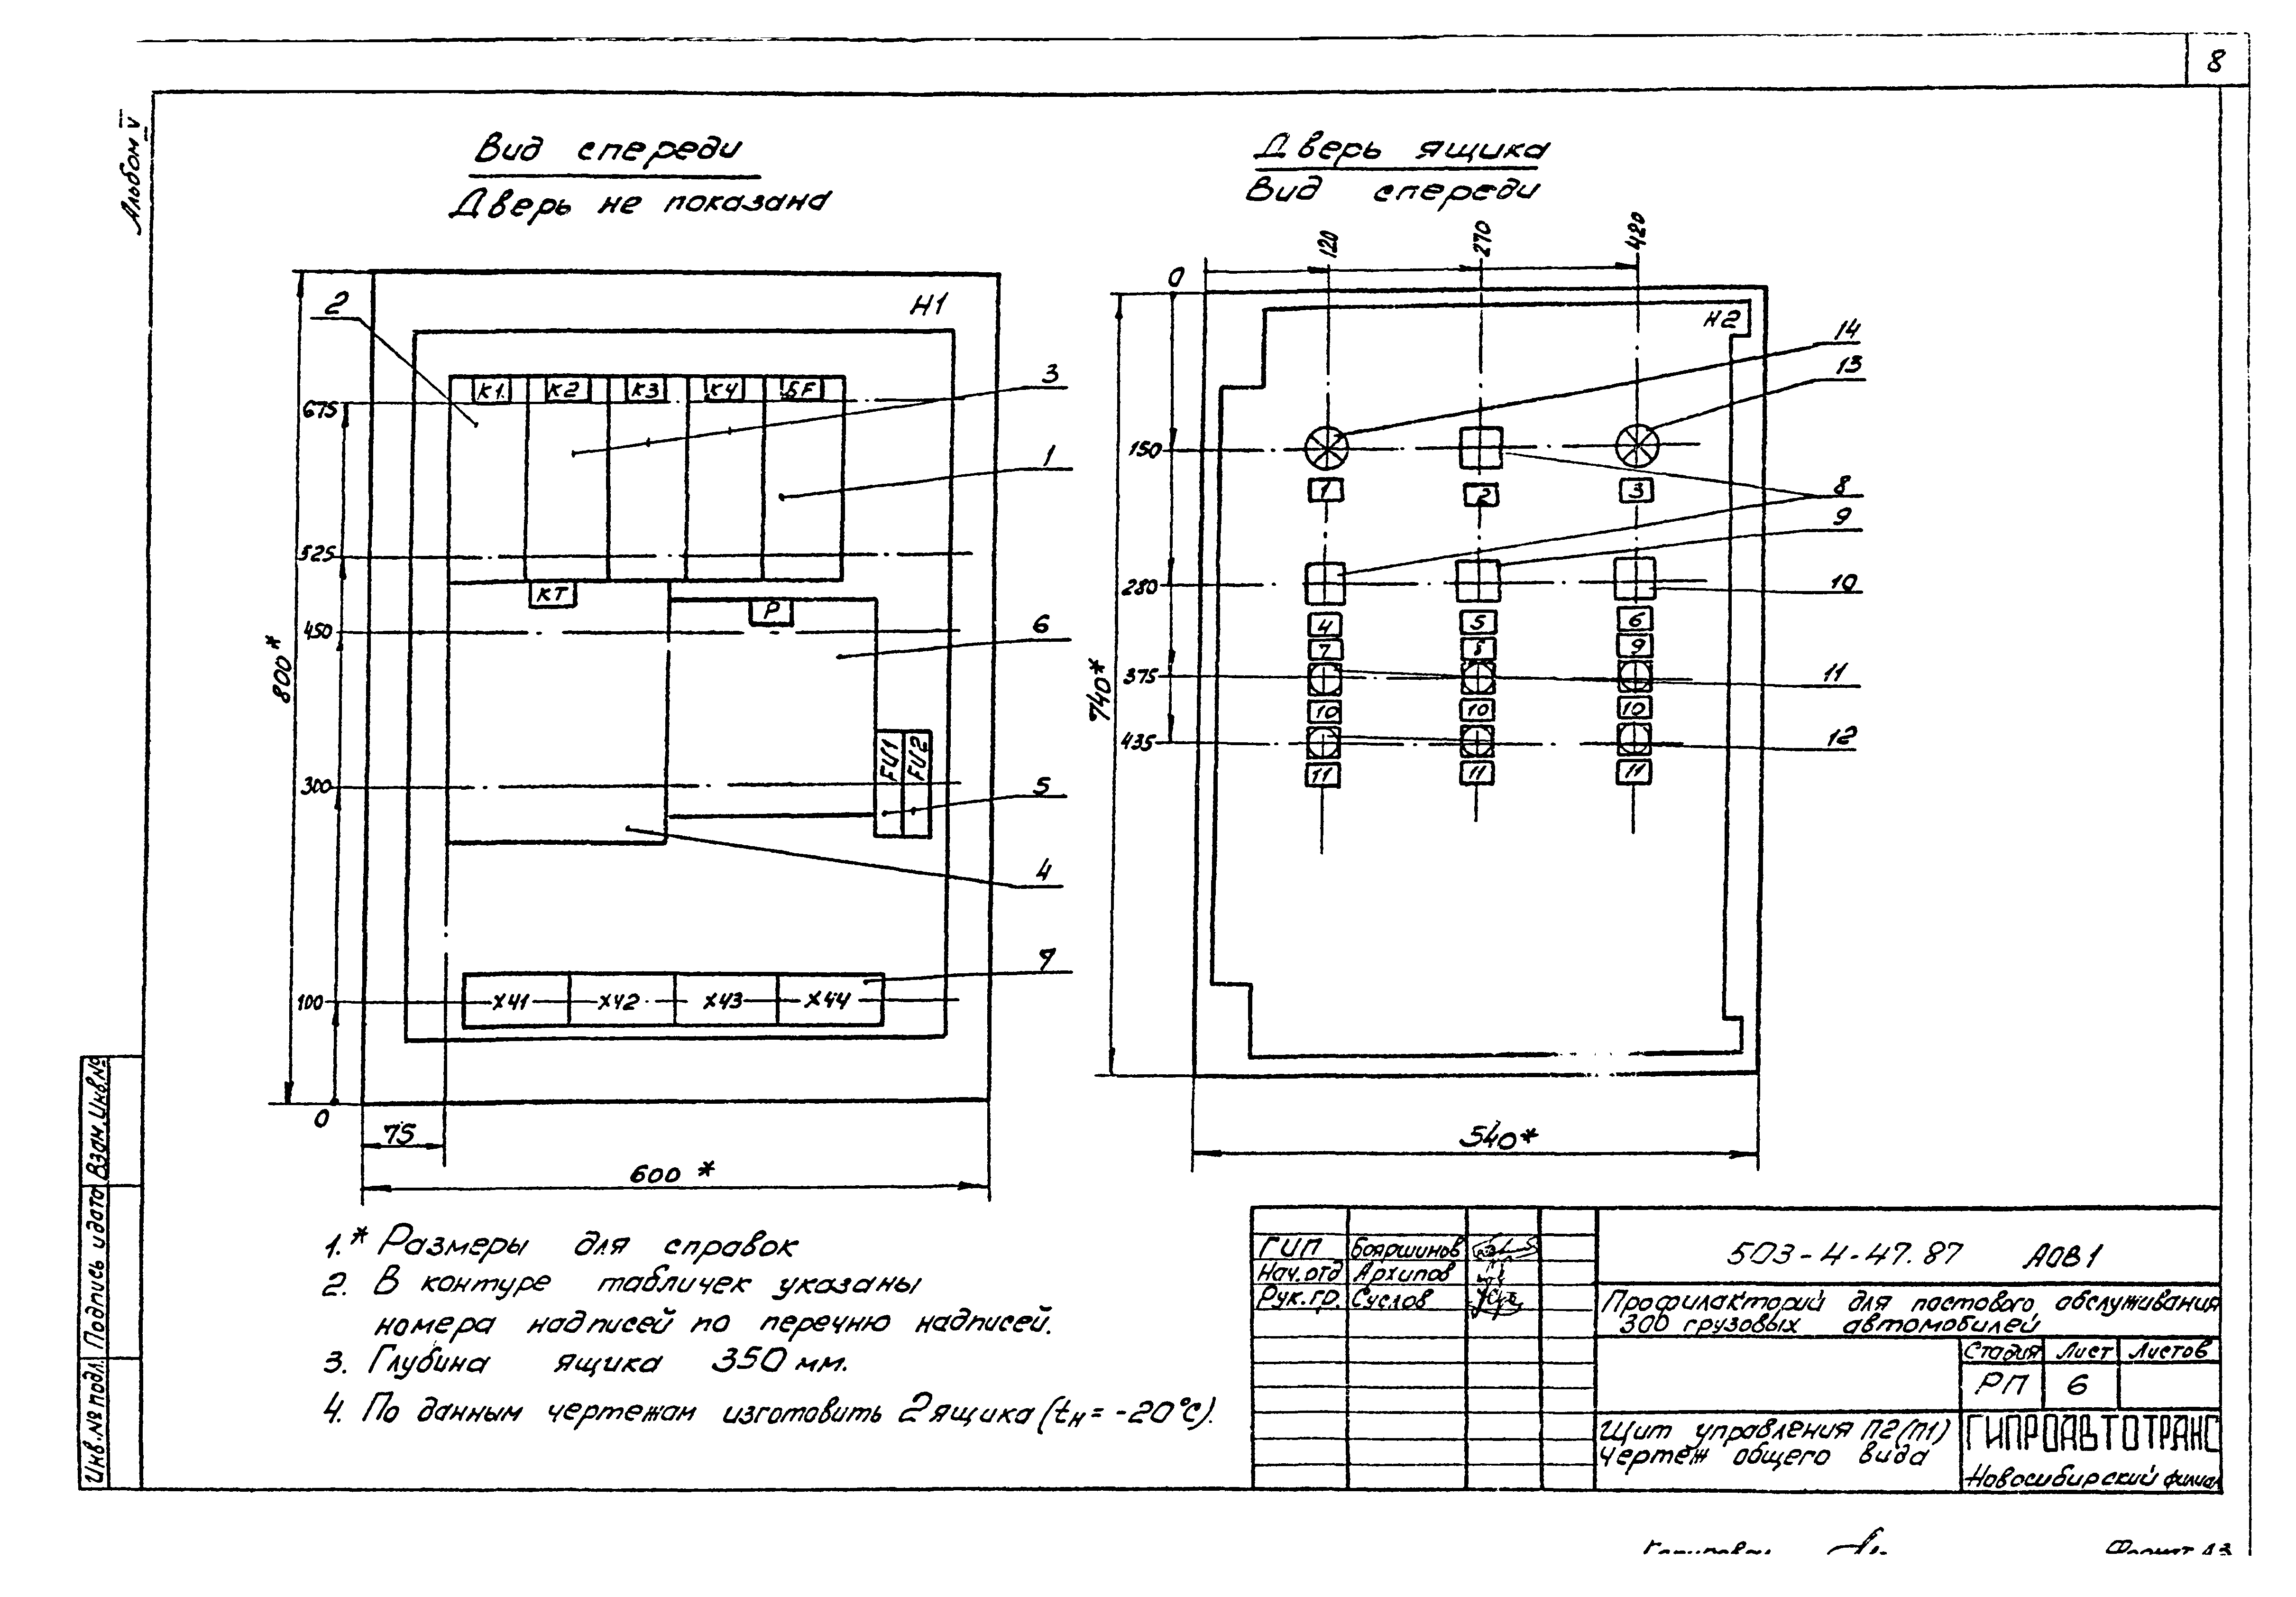 8
Альбом V
Вид спереди
Дверь не показана
Дверь ящика
Вид спереди
120
270
420
0
Н1
Н2
2
3
1
6
5
4
7
К1
К2
К3
К4
БF
675
525
450
300
100
0
800*
КТ
Р
FU1
FU2
ХЧ1
ХЧ2
ХЧ3
ХЧ4
75
600 *
14
13
8
9
10
11
12
150
280
375
435
740*
1
2
3
4
5
6
7
8
9
10
10
10
11
11
11
540*
1.* Размеры для справок
2. В контуре табличек указаны
номера надписей по перечню надписей.
3. Глубина ящика 350 мм.
4. По данным чертежам изготовить 2 ящика (tн = -20°С).
Взам.Инв.№
Подпись и дата
Инв.№ подл.
ГИП Бояршинов
Нач.отд Архипов
Рук.гр. Суслов
503-4-47.87 АОВ1
Профилакторий для постового обслуживания
300 грузовых автомобилей
Стадия Лист Листов
РП 6
Щит управления П2(П1)
Чертеж общего вида
ГИПРОАВТОТРАНС
Новосибирский филиал
Копировал
Формат А3